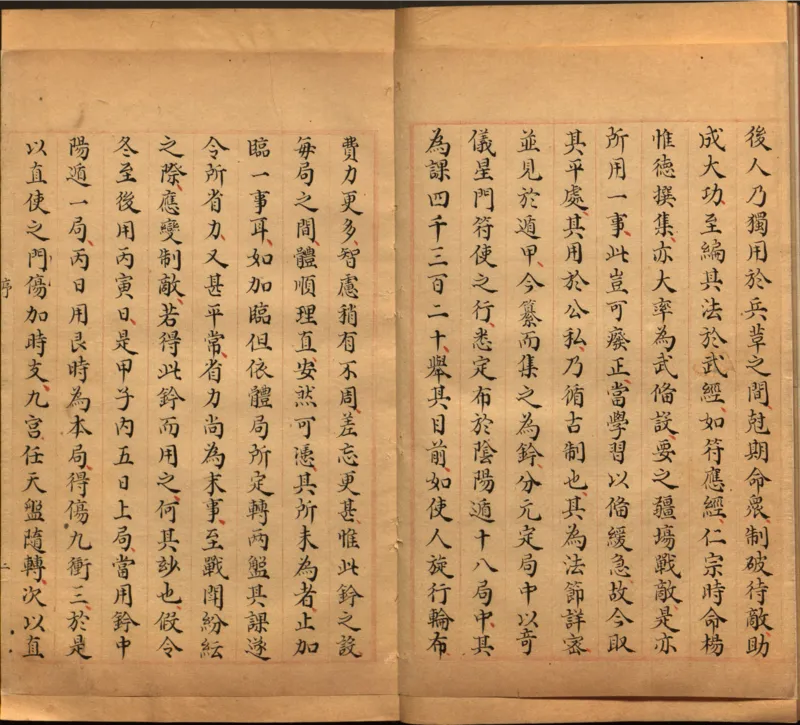 後人乃獨用於兵草之間尅期命衆制破待敵助
成大功至編其法於武經如符應經仁宗時命楊
惟德撰集亦大率為武俻設要之疆場戰敵是亦
所用一事此豈可癈正當學習以俻緩急故今取
其平處其用於公私乃循古制也其為法節詳審
並見於遁甲今纂而集之為鈐分元定局中以竒
儀星門符使之行悉定布於陰陽遁十八局中其
為課四千三百二十舉其目前如使人旋行輪布
費力更多智慮稍有不周差忘更甚惟此鈐之設
每局之間體順理直安然可憑其所未為者止加
臨一事耳如加臨但依體局所定轉两盤其課遂
令所省力又甚平常省力尚為末事至戰鬪紛紜
之際應變制敵若得此鈐而用之何其玅也假令
冬至後用丙寅日是甲子内五日上局當用鈐中
陽遁一局丙日用艮時為本局得傷九衝三於是
以直使之門傷加時支九宮任天盤隨轉次以直
序
二